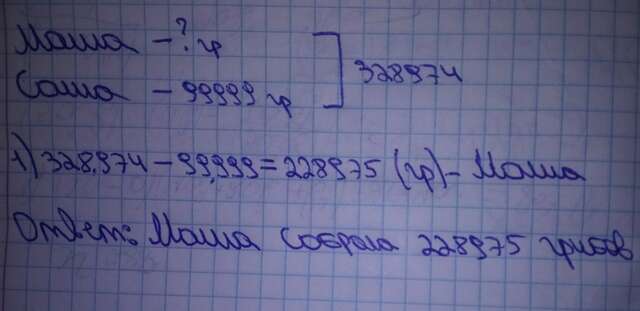 Маша - ? гр
Саша - 99999 гр
328974
1) 328.974 - 99.999 = 228975 (гр) - Маша
Ответ: Маша собрала 228975 грибов